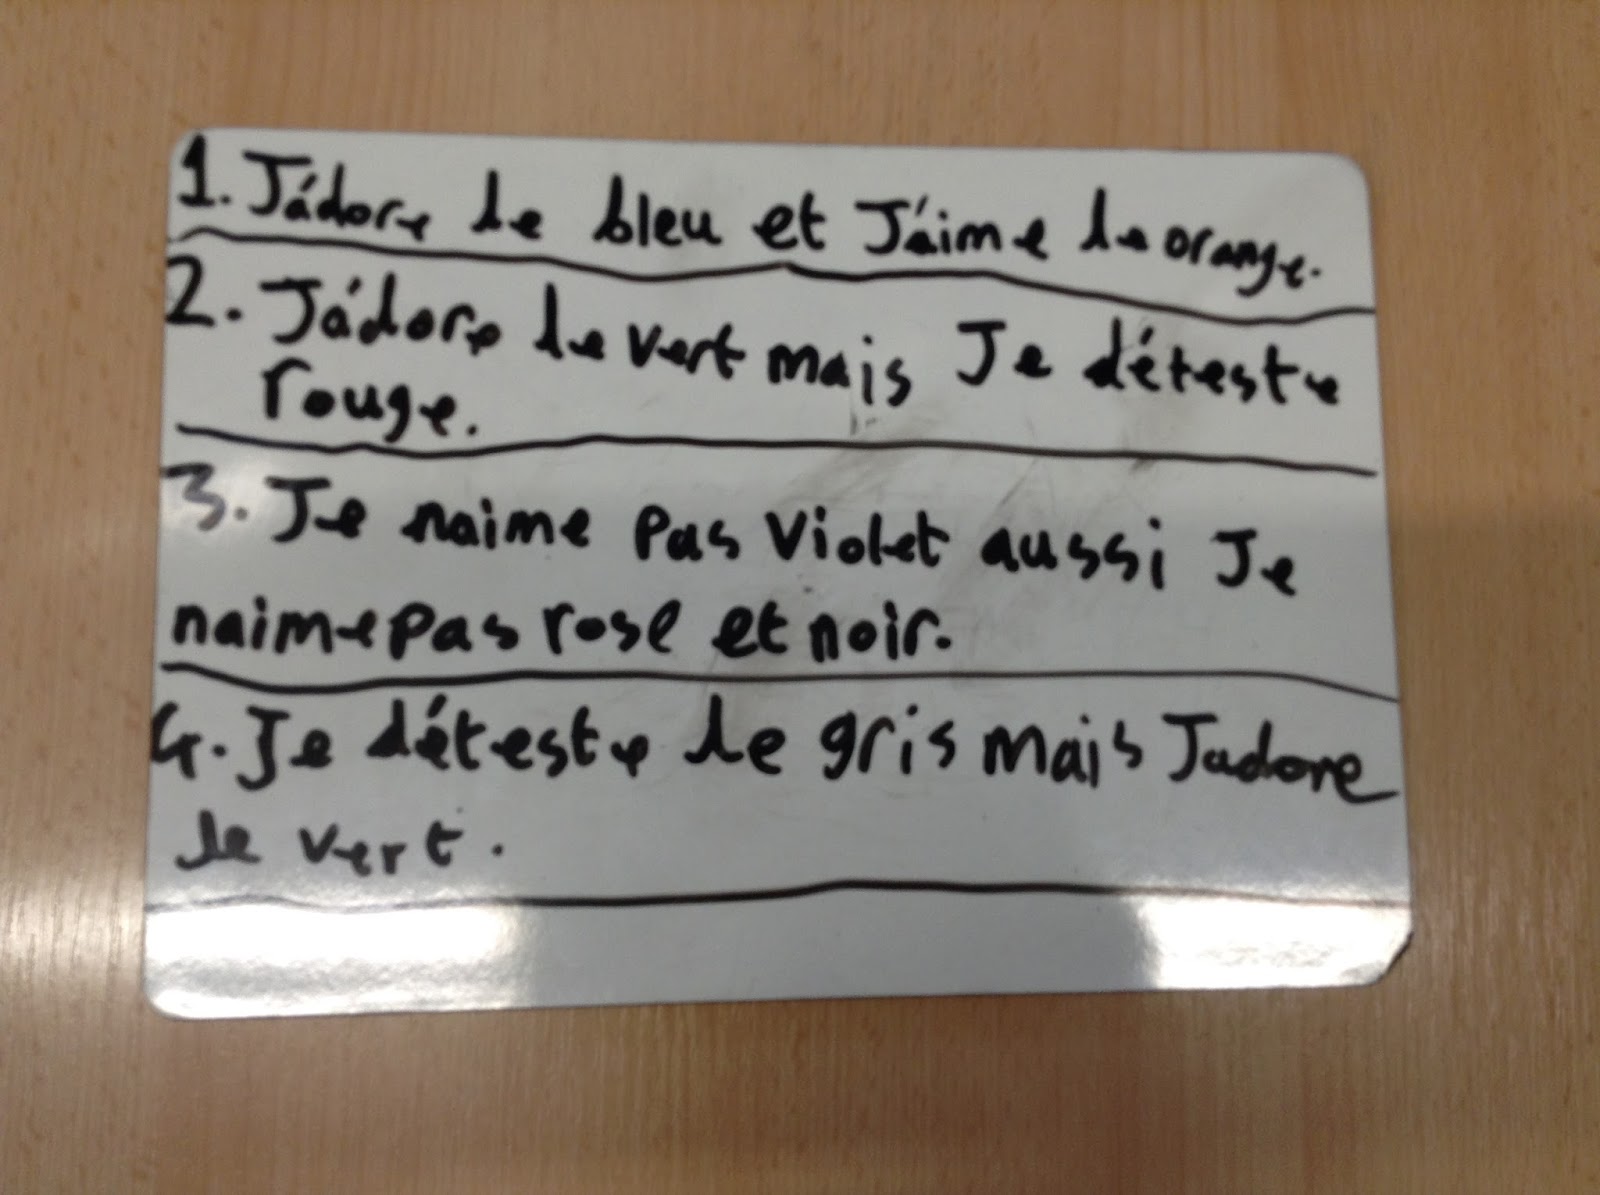 1. J'adore le bleu et J'aime le orange.
2. J'adore le vert mais Je déteste
rouge.
3. Je naime pas violet aussi Je
naime pas rose et noir.
4. Je déteste le gris mais Jadore
le vert.